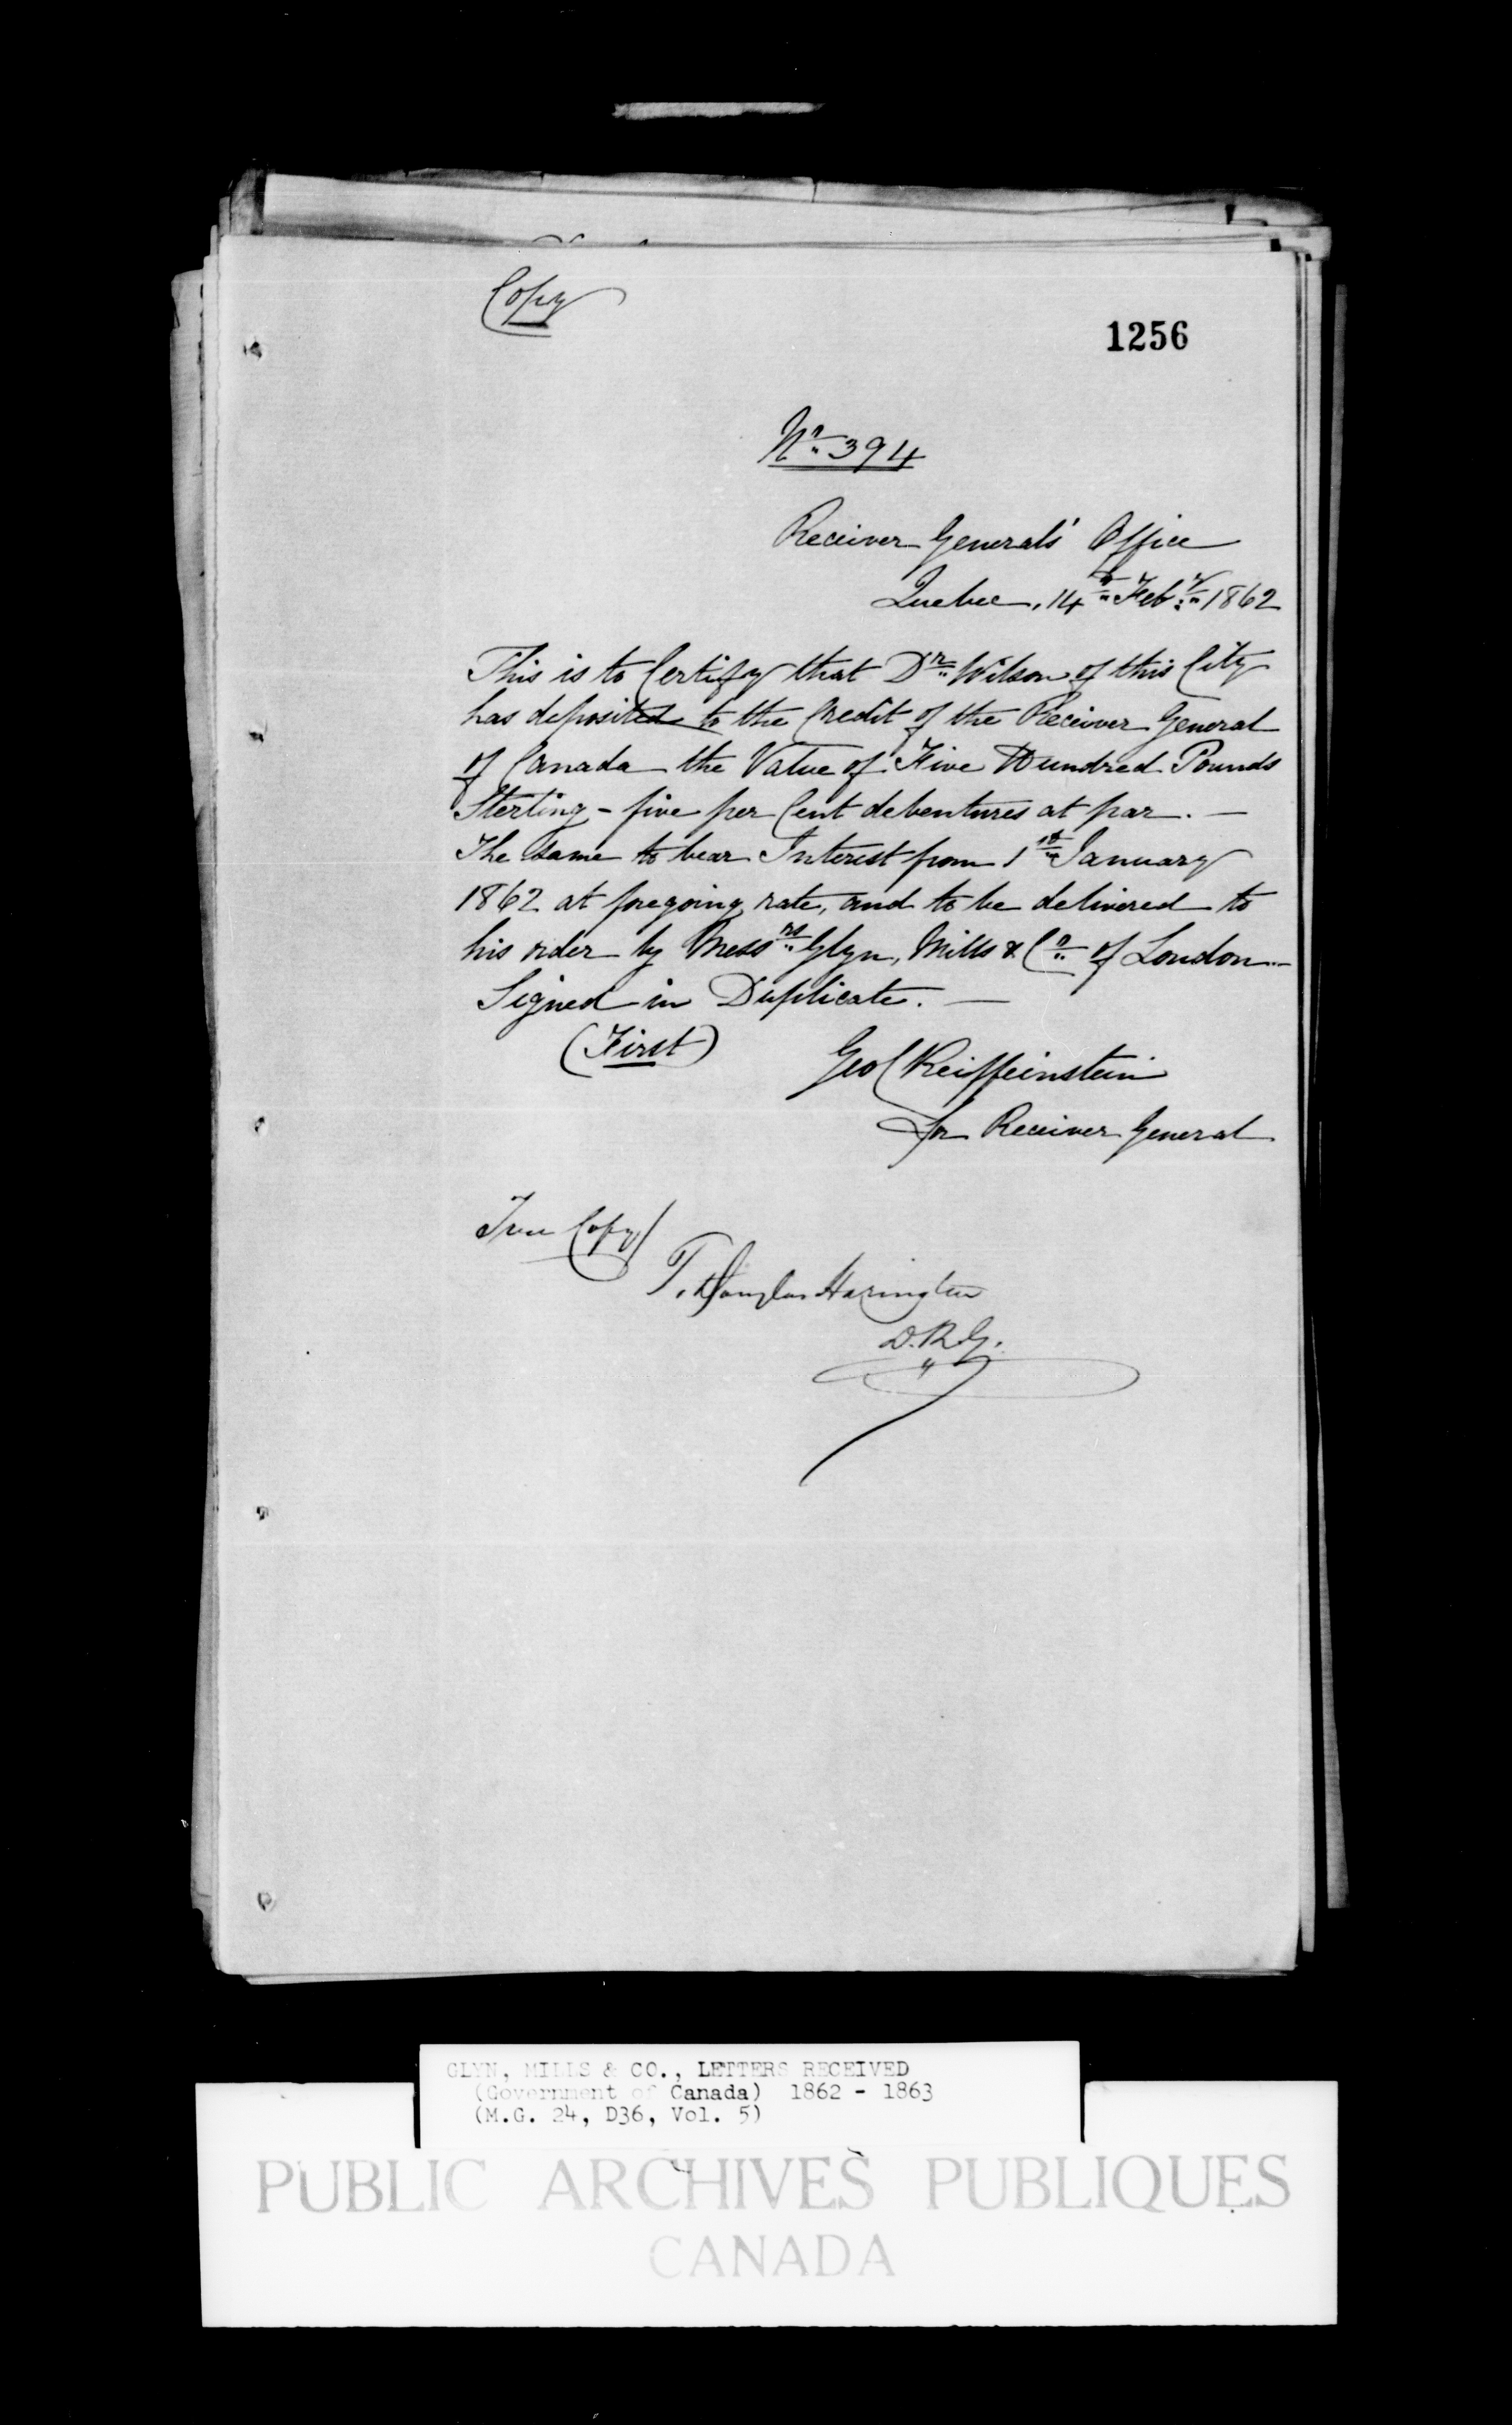 Copy
1256
No 394
Receiver Generals' Office
Quebec, 14th Feby 1862
This is to Certify that Dr Wilson of this City
has deposited to the Credit of the Receiver General
of Canada the Value of Five Hundred Pounds
Sterling - five per Cent debentures at par. —
The same to bear Interest from 1st January
1862 at foregoing rate, and to be delivered to
his order by Messrs Glyn, Mills & Co of London —
Signed in Duplicate. —
(First)
Geo C Reiffeinstein
for Receiver General
True Copy/
T. Douglas Harington
D.R.G.
GLYN, MILLS & CO., LETTERS RECEIVED
(Government of Canada) 1862 - 1863
(M.G. 24, D36, Vol. 5)
PUBLIC ARCHIVES PUBLIQUES
CANADA